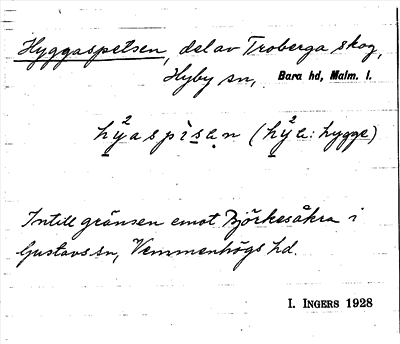 Hyggaspetsen, del av Troberga skog,
Hyby sn, Bara hd, Malm. l.
hy²aspìsạn (hy²a: hygge)
Intill gränsen emot Björkesåkra i
Gustavs sn, Vemmenhögs hd.
I. INGERS 1928